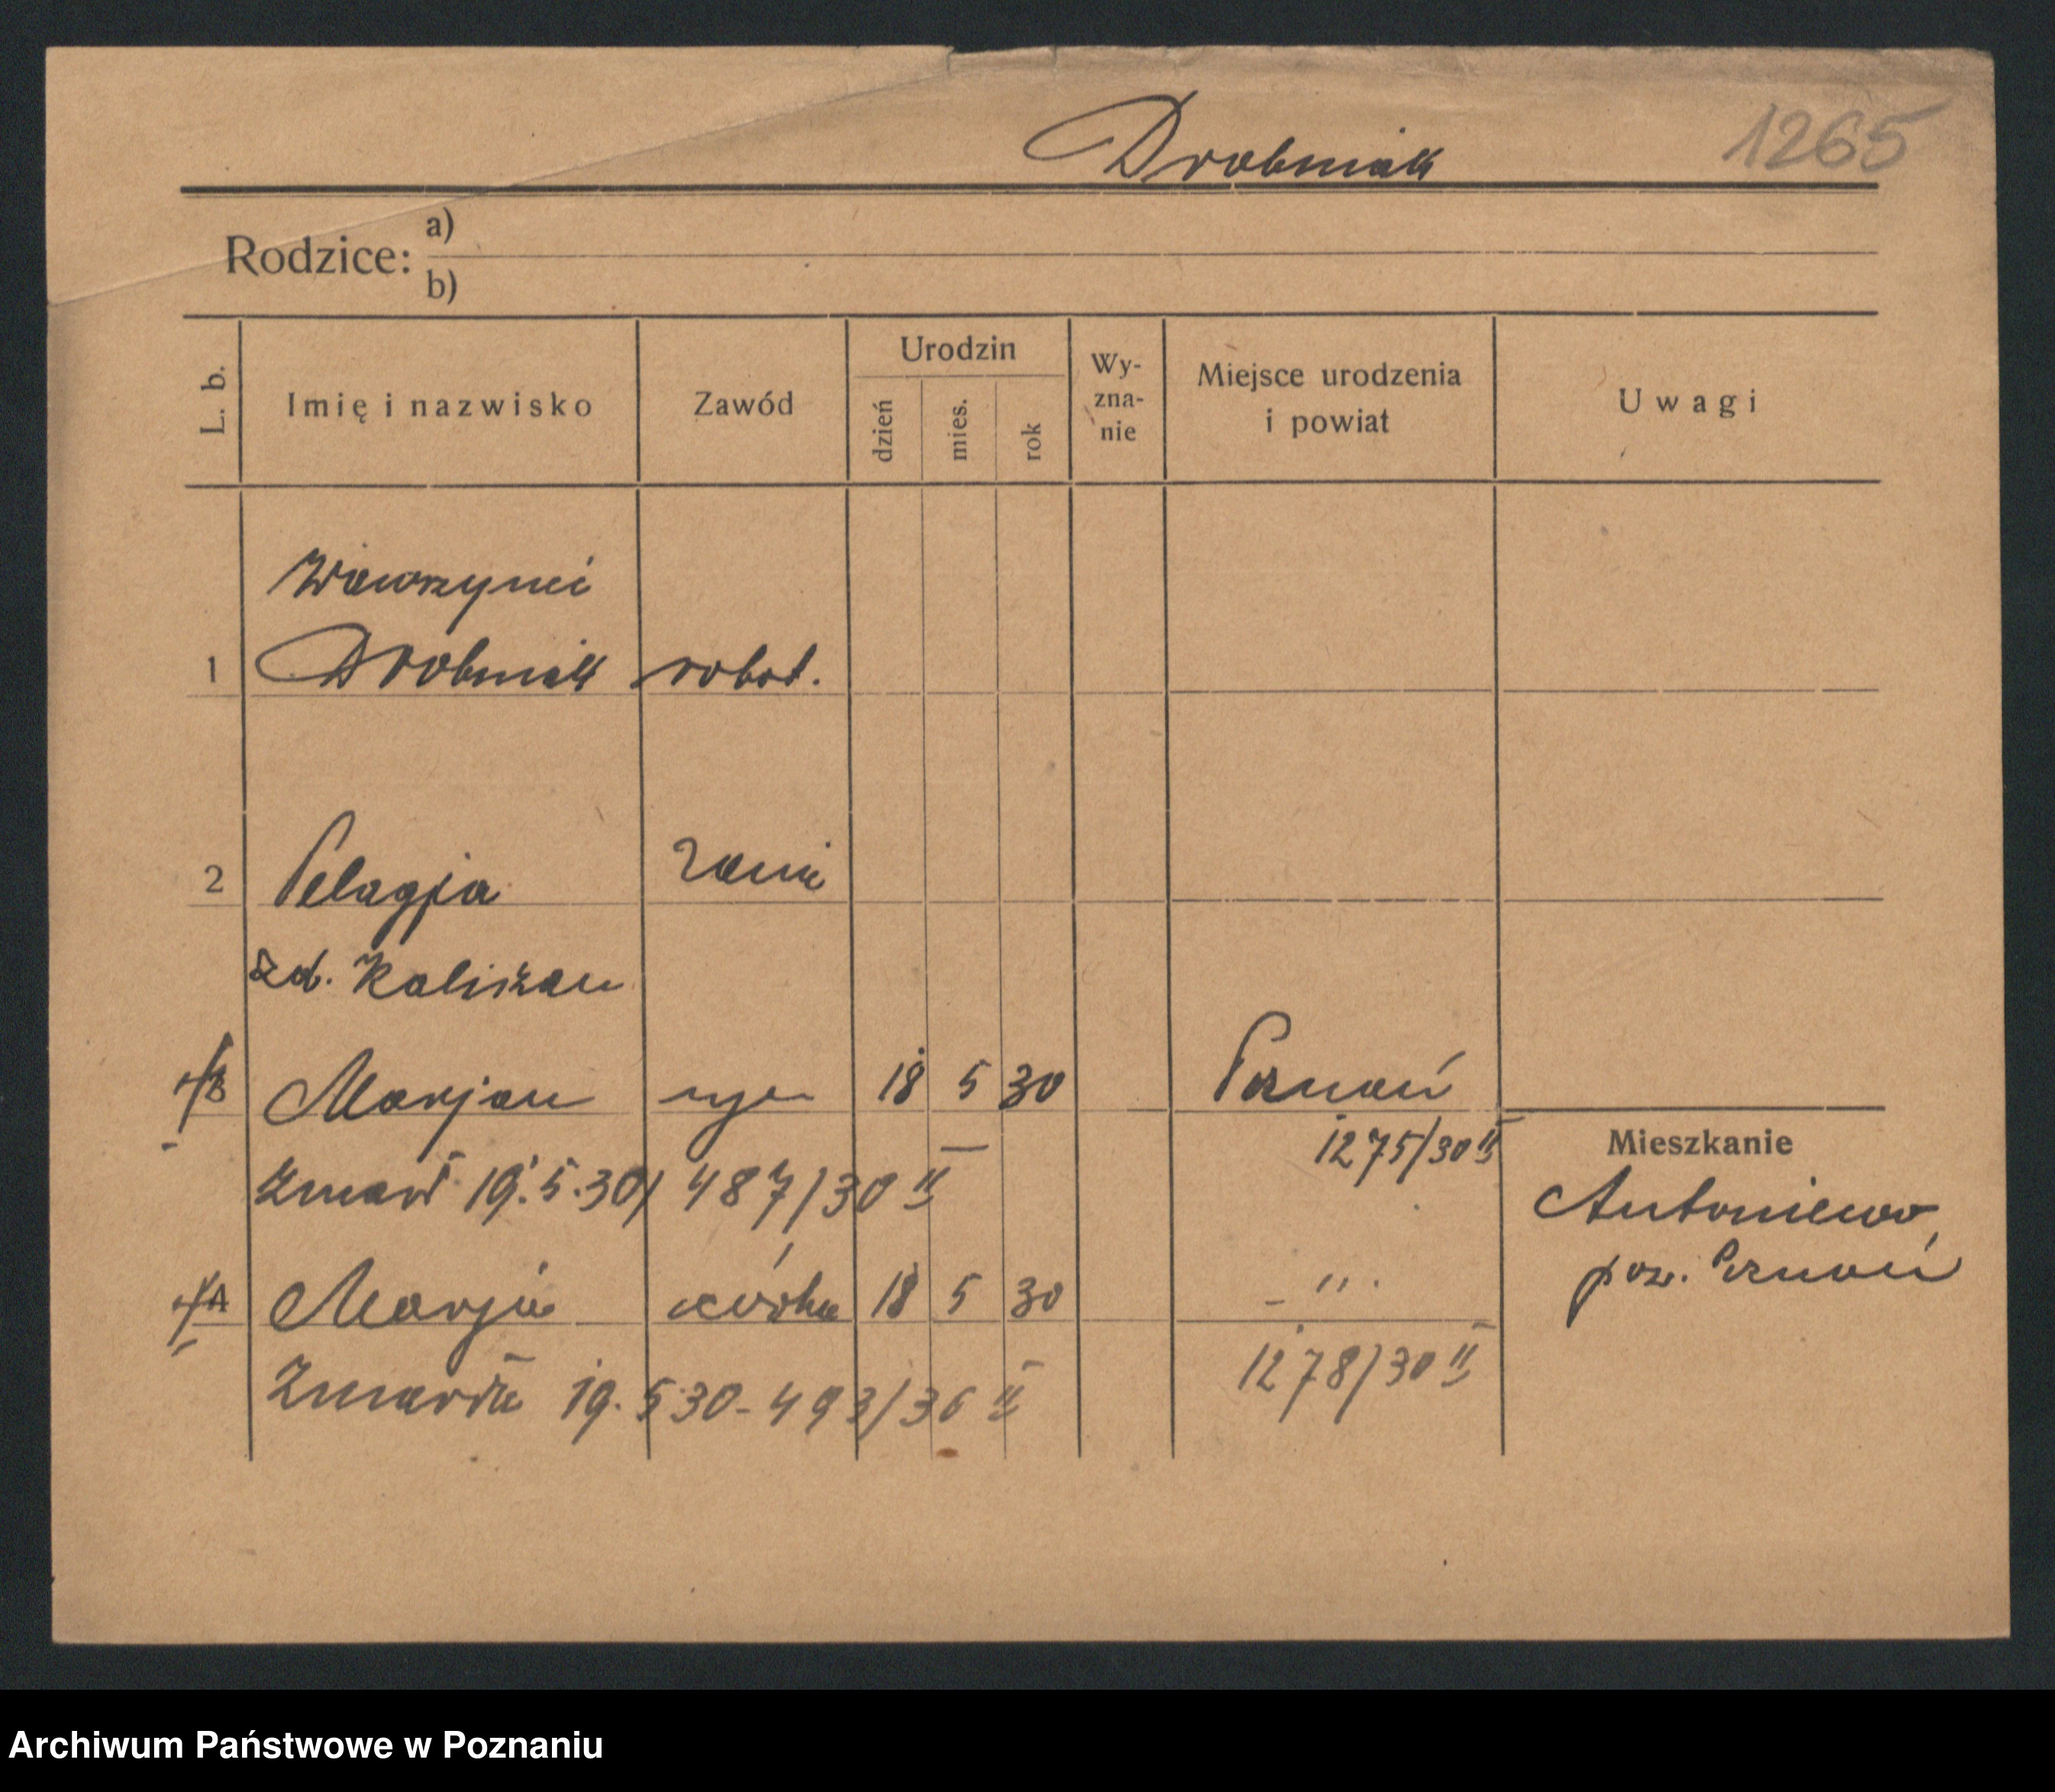 Drobniak
1265
Rodzice: a)
b)
L. b.
Imię i nazwisko
Zawód
Urodzin
dzień
mies.
rok
Wy-
zna-
nie
Miejsce urodzenia
i powiat
Uwagi
Wawrzyniec
1 Drobniak robot.
2 Pelagja żona
zd. Kaliszan
Marjan syn 18 5 30 Poznań
1275/30 II
zmarł 19.5.30, 487/30 II
Mieszkanie
Antoniewo,
pow. Poznań
Marja córka 18 5 30 - " -
1278/30 II
zmarła 19.5.30 - 493/30 II
Archiwum Państwowe w Poznaniu